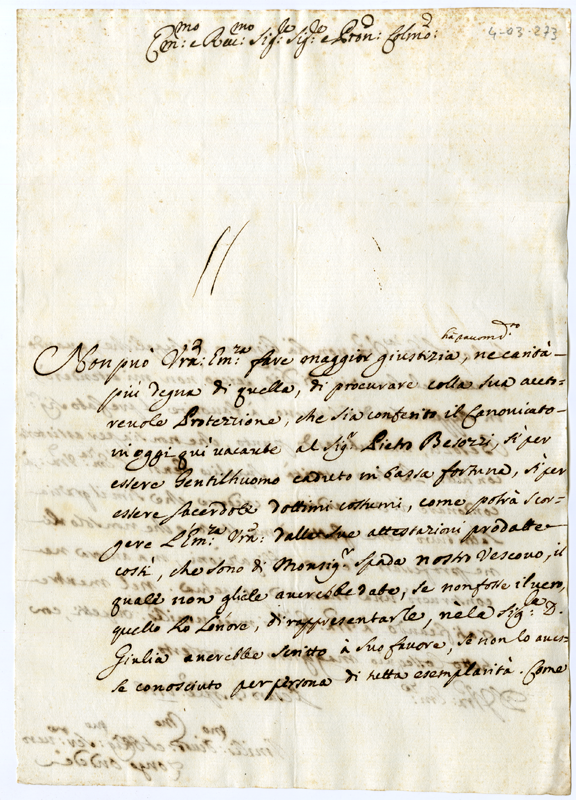 4-03-273
Em:mo e Reu:mo Sig:re Sig:re e Pron: Colmo:
Non può Vra: Em:za fare maggior giustizia, ne carità
più degna di quella, di procurare colla sua auto-
reuole Protezzione, che sia conferito il Canonicato
in oggi quì vacante al Sig:r Pietro Besozzi, sì per
essere Gentilhuomo caduto in bassa fortuna, sì per
essere sacerdote d'ottimi costumi, come potrà scor-
gere l'Em:za Vra: dalle sue attestazioni prodotte
costì, che sono di Monsig:r Spada nostro Vescovo, il
quale non gliele auerebbe date, se non fosse il uero,
quello hò l'onore, di rappresentarle, nè la Sig:ra D.
Giulia auerebbe scritto à suo fauore, se non lo aues-
se conosciuto per persona di tutta esemplarità. Come